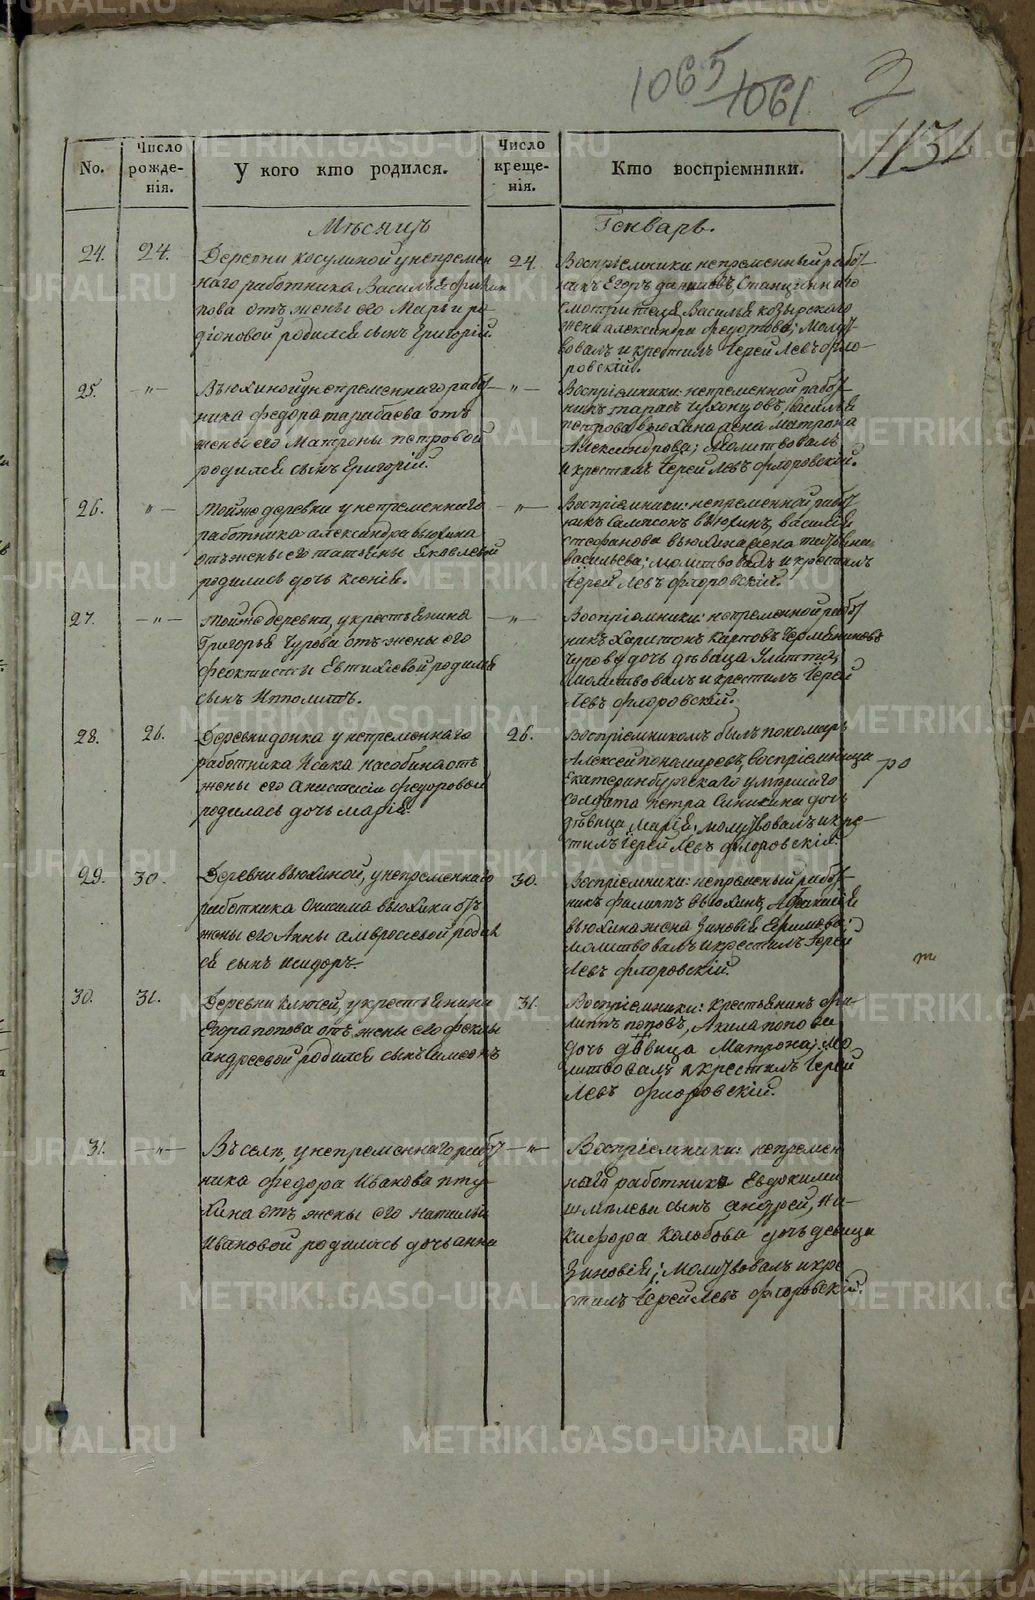 1065
1061
2
1131
No.
Число рожде-нія.
У кого кто родился.
Число креще-нія.
Кто воспріемники.
Мѣсяцъ
Генварь.
24.
24.
Деревни Косулиной у непремен
наго работника Василья
пова отъ жены его Марьи ро
діоновой родился сынъ Григорій.
24.
Воспріемники непременный работ
никъ Егоръ Станціоннаго
смотрителя Василья Козырскаго
жена Александра Федотова; Молит
вовалъ и крестилъ Іерей Левъ Фло
ровскій.
25.
—„—
Вьюхиной у непременнаго работ
ника Федора Тарабаева отъ
жены его Матроны Петровой
родился сынъ Григорій.
—„—
Воспріемники: непременной работ
никъ Тарасъ Василья
Петрова Вьюхина жена Матрона
Александрова; Молитвовалъ
и крестилъ Іерей Левъ Флоровскій.
26.
„—
Тойже деревни у непременнаго
работника Александра Вьюхина
отъ жены его Татьяны Яковлевой
родилась дочь Ксенія.
—„—
Воспріемники: непременной работ
никъ Сампсонъ Вьюхинъ, Василья
Стефанова Вьюхина жена
Васильева; молитвовалъ и крестилъ
Іерей Левъ Флоровскій.
27.
—„—
Тойже деревни, у крестьянина
Григорья Чурова отъ жены его
Феоктисты Евтихіевой родился
сынъ Ипполитъ.
—„—
Воспріемники: непременной работ
никъ Харитонъ Карповъ
Чурова дочь дѣвица Улитта;
Молитвовалъ и крестилъ Іерей
Левъ Флоровскій.
28.
26.
Деревни у непременнаго
работника Исака отъ
жены его Анастасіи Федоровой
родилась дочь Марія.
26.
Воспріемникомъ былъ пономарь
Алексей Пономаревъ, Воспріемница
Екатеринбургскаго умершаго
солдата Петра дочь
дѣвица Марія; молитвовалъ и кре
стилъ Іерей Левъ Флоровскій.
ро
29.
30.
Деревни Вьюхиной, у непременнаго
работника Онисима Вьюхина отъ
жены его Анны Амвросіевой родил
ся сынъ Исидоръ.
30.
Воспріемники: непременый работ
никъ Филипъ Вьюхинъ,
Вьюхина жена Зиновія Ефимова;
молитвовалъ и крестилъ Іерей
Левъ Флоровскій.
т
30.
31.
Деревни Ключей, у крестьянина
Егора Попова отъ жены его Феклы
Андреевой родился сынъ Симеонъ
31.
Воспріемники: крестьянинъ Фи
липъ Поповъ, Акила Попова
дочь дѣвица Матрона; Мо
литвовалъ и крестилъ Іерей
Левъ Флоровскій.
31.
—„—
Въ селѣ, у непременнаго работ
ника Федора Иванова Пту
хина отъ жены его Натальи
Ивановой родилась дочь Анна
—„—
Воспріемники: непремен
наго работника Евдокима
Шмелева сынъ Андрей, Ни
кифора Колобова дочь девица
Зиновія; Молитвовалъ и кре
стилъ Іерей Левъ Флоровскій.
METRIKI.GASO-URAL.RU